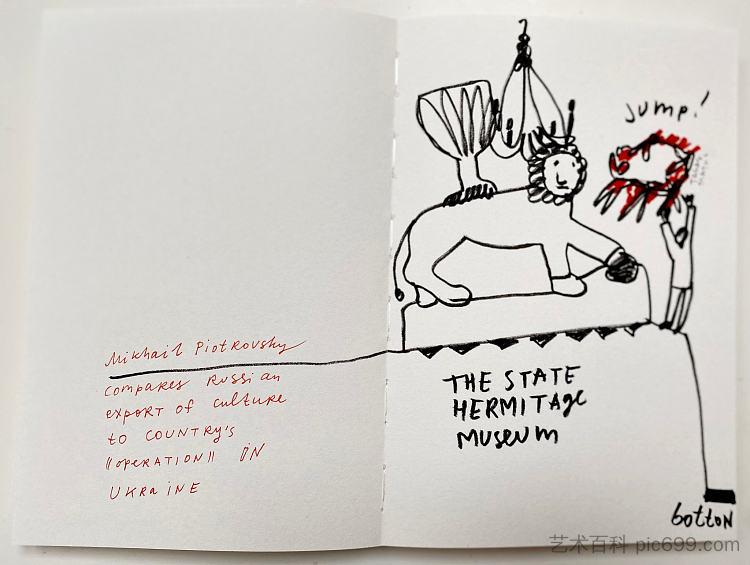 Mikhail Piotrovsky
compares Russian
export of culture
to COUNTRY's
"OPERATION" iN
UKRaiNE
jump!
THE STATE
HERMITAGE
MUSEUM
bottoN
艺术百科 pic699.com